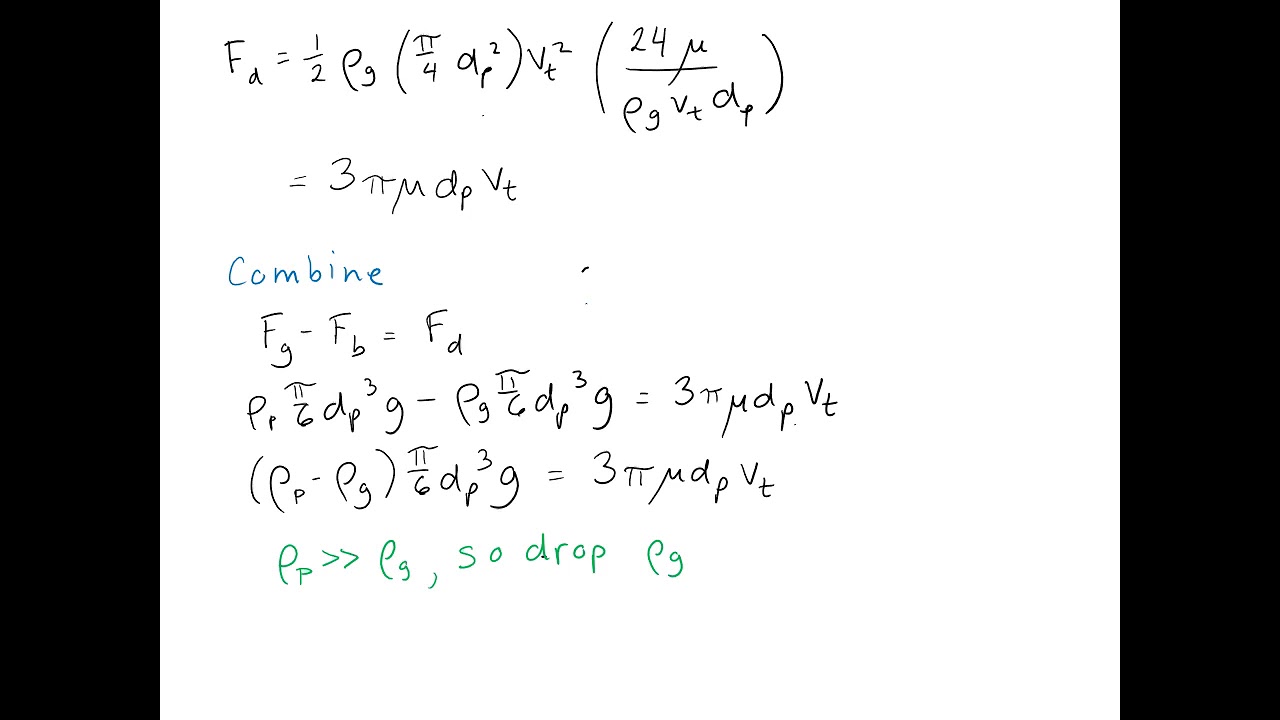 F_d = 1/2 ρ_g (π/4 d_p²) v_t² (24 μ / ρ_g v_t d_p)
= 3πμ d_p v_t
Combine
F_g - F_b = F_d
ρ_p π/6 d_p³ g - ρ_g π/6 d_p³ g = 3πμ d_p v_t
(ρ_p - ρ_g) π/6 d_p³ g = 3πμ d_p v_t
ρ_p >> ρ_g, so drop ρg